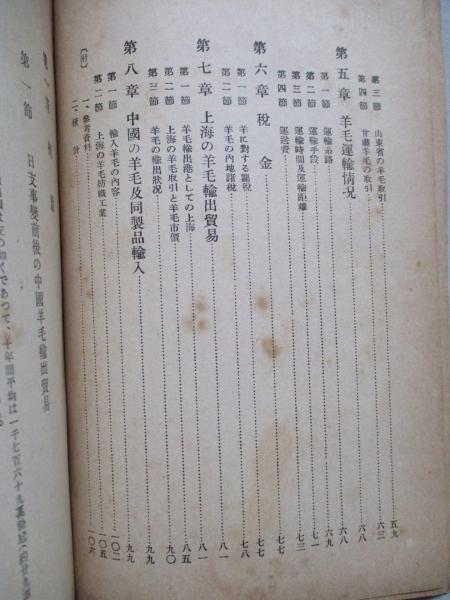 第三節 山東省の羊毛取引………五九
第四節 甘肅羊毛の取引………六三
第五章 羊毛運輸情況………六八
第一節 運輸系路………六八
第二節 運輸手段………六九
第三節 運輸時間及運輸距離………七一
第四節 運送費………七三
第六章 税金………七七
第一節 羊に對する課税………七七
第二節 羊毛の內地諸税………七八
第七章 上海の羊毛輸出貿易………八一
第一節 羊毛輸出港としての上海………八一
第二節 上海の羊毛取引と羊毛市價………八五
第三節 羊毛の輸出狀況………九〇
第八章 中國の羊毛及同製品輸入………九九
第一節 輸入羊毛の內容………九九
第二節 上海の羊毛紡織工業………一〇二
〔附〕
一、參考資料………一〇五
二、統計………一〇六
第一節 日支事變前後の中國羊毛輸出貿易
は左の如くであつて、十年間平均は一千七百六十九萬